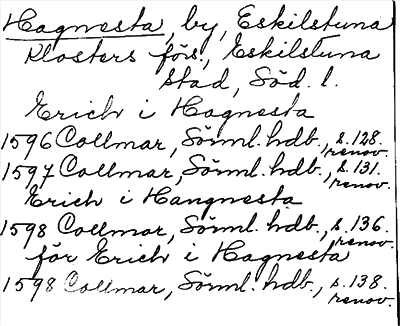 Hagnesta, by, Eskilstuna
Klosters förs., Eskilstuna
stad, Söd. l.
Erich i Hagnesta
1596 Collmar, Sörml. hdb., s. 128. renov.
1597 Collmar, Sörml. hdb., s. 131. renov.
Erich i Hangnesta
1598 Collmar, Sörml. hdb., s. 136. renov.
för Erich i Hagnesta
1598 Collmar, Sörml. hdb., s. 138. renov.